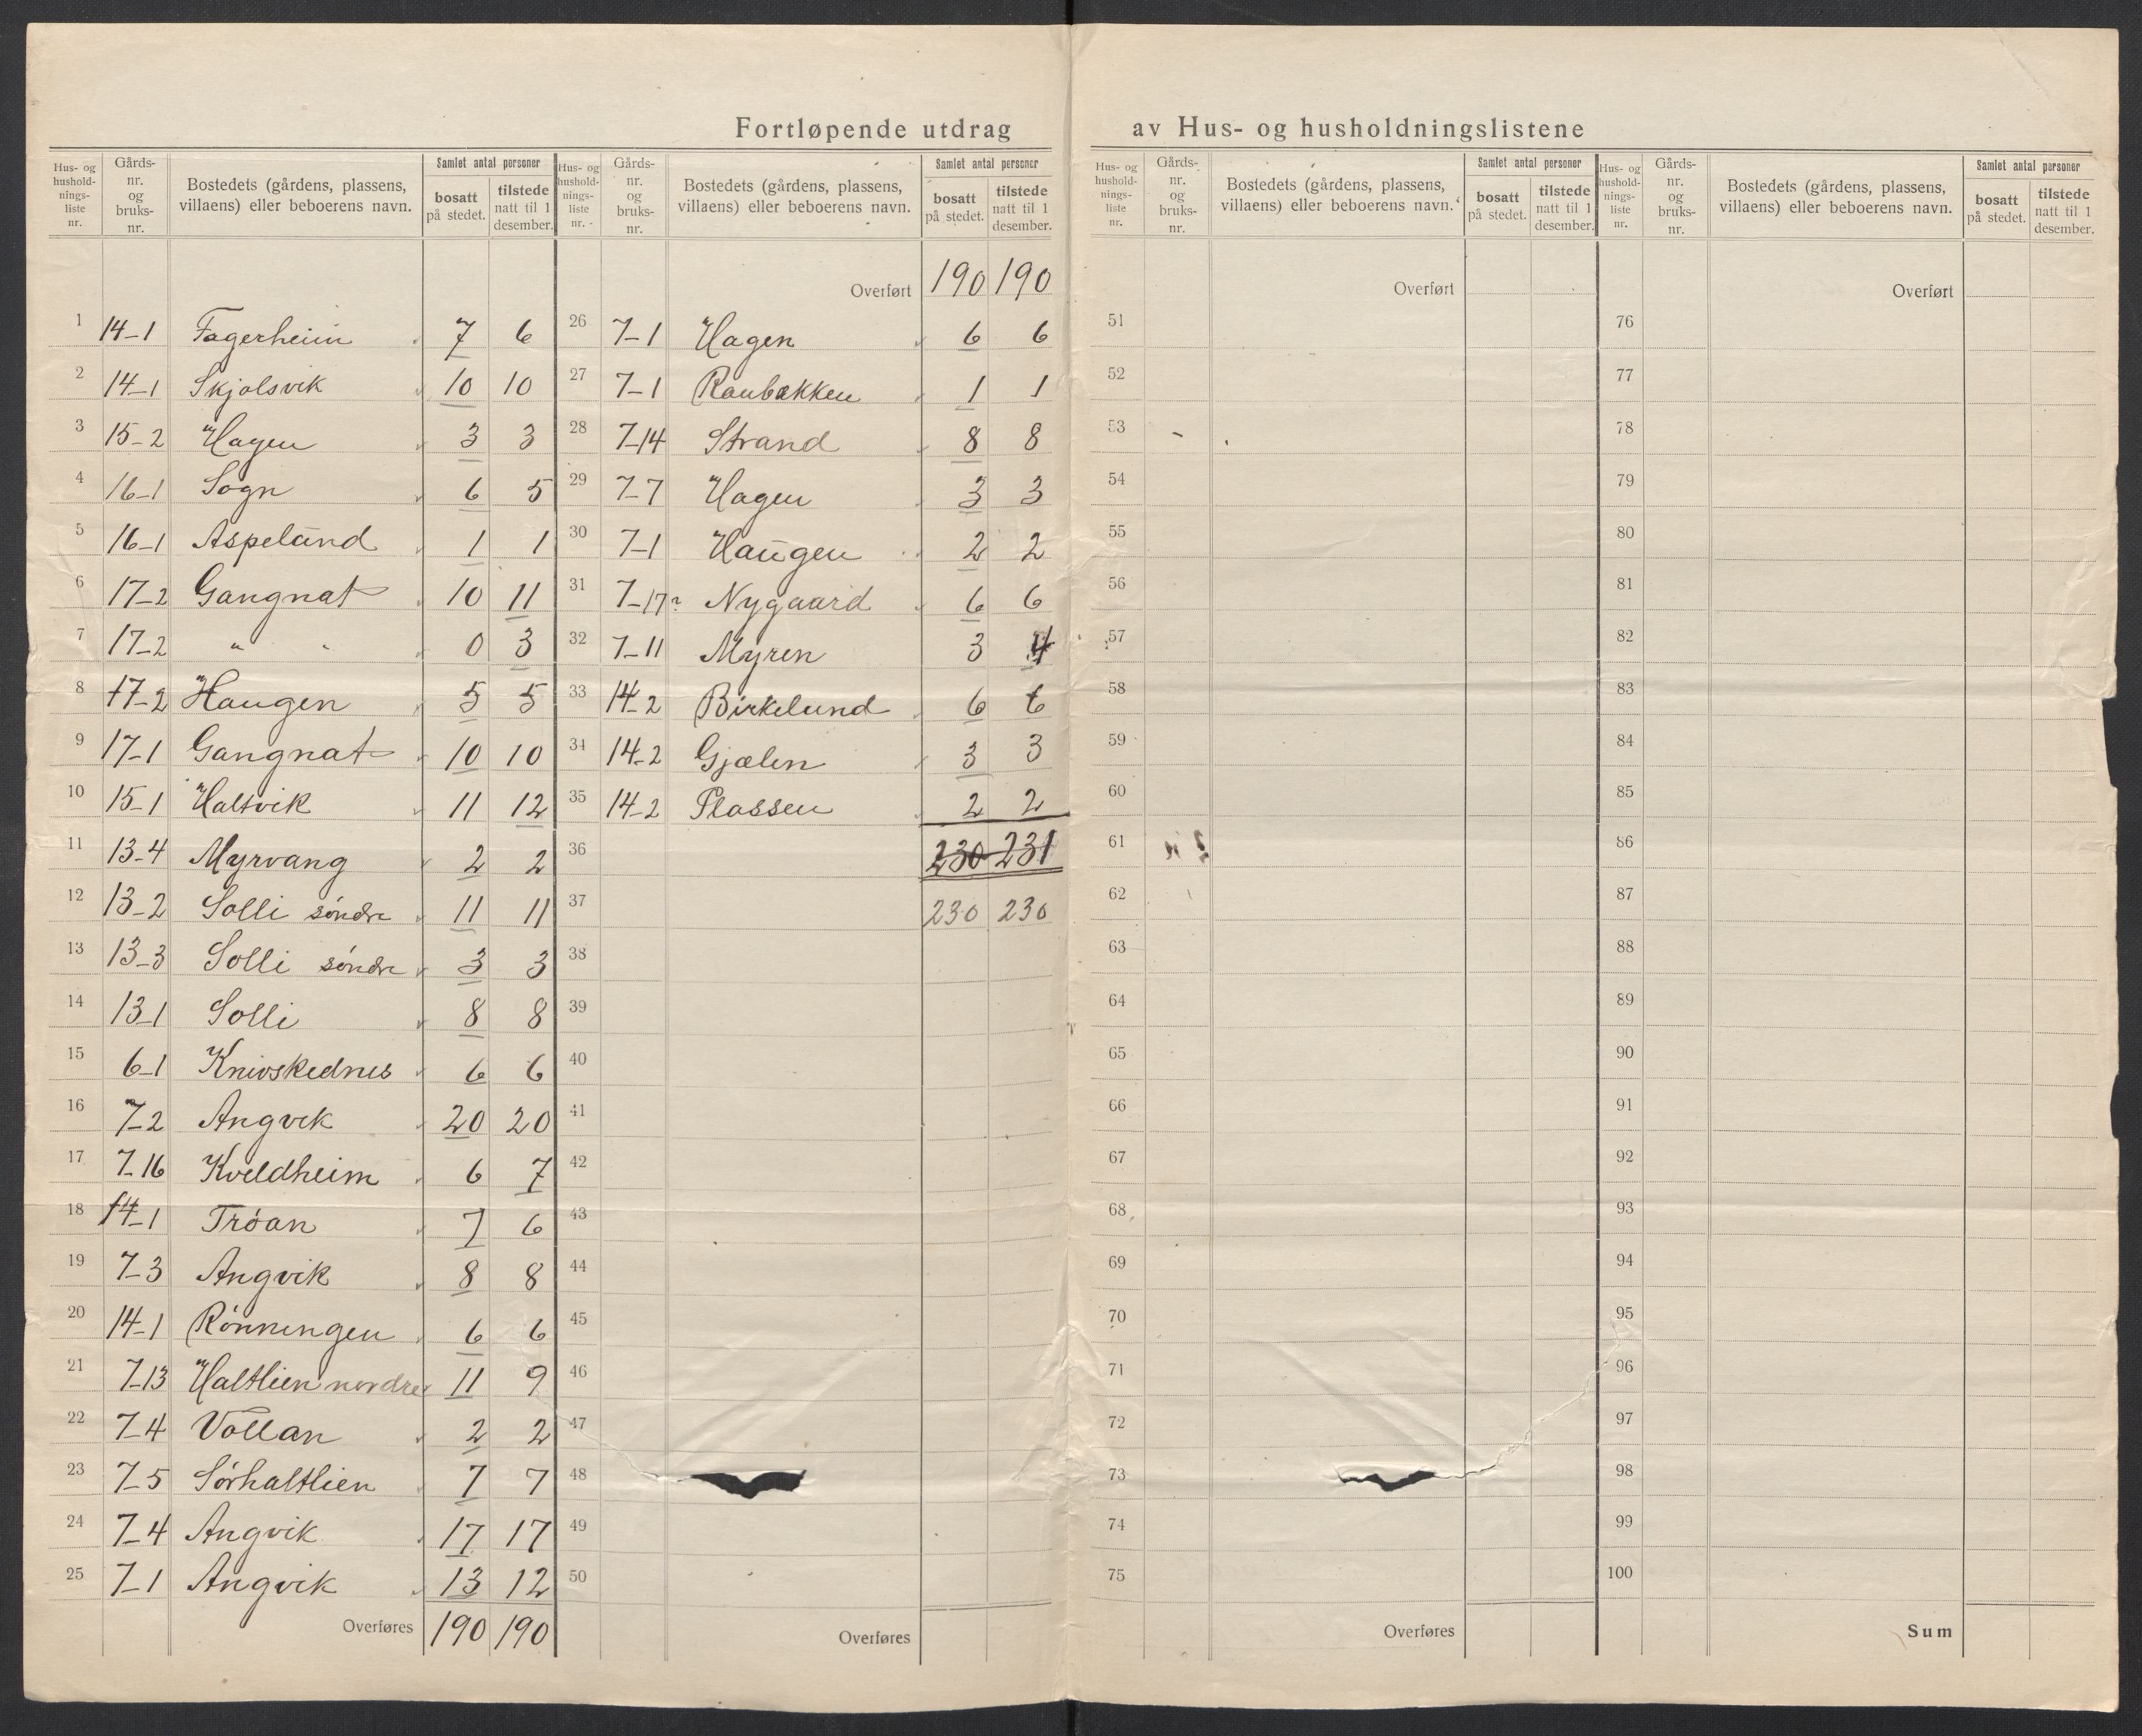 Fortløpende utdrag av Hus- og husholdningslistene
Hus- og husholdningsliste nr. Gårds-nr. og bruks-nr. Bostedets (gårdens, plassens, villaens) eller beboerens navn. Samlet antal personer bosatt på stedet. tilstede natt til 1 desember.
1 14-1 Fagerheim 7 6
2 14-1 Skjølsvik 10 10
3 15-2 Hagen 3 3
4 16-1 Sogn 6 5
5 16-1 Aspeland 1 1
6 17-2 Gangnat 10 11
7 17-2 " " 0 3
8 17-2 Haugen 5 5
9 17-1 Gangnat 10 10
10 15-1 Haltvik 11 12
11 13-4 Myrvang 2 2
12 13-2 Solli söndre 11 11
13 13-3 Solli söndre 3 3
14 13-1 Solli 8 8
15 6-1 Knivskednes 6 6
16 7-2 Angvik 20 20
17 7-16 Kveldheim 6 7
18 14-1 Tróan 7 6
19 7-3 Angvik 8 8
20 14-1 Rónningen 6 6
21 7-13 Haltlien nordre 11 9
22 7-4 Vollan 2 2
23 7-5 Sórhaltlien 7 7
24 7-4 Angvik 17 17
25 7-1 Angvik 13 12
Overføres 190 190
Hus- og husholdningsliste nr. Gårds-nr. og bruks-nr. Bostedets (gårdens, plassens, villaens) eller beboerens navn. Samlet antal personer bosatt på stedet. tilstede natt til 1 desember.
Overført 190 190
26 7-1 Hagen 6 6
27 7-1 Raubækken 1 1
28 7-14 Strand 8 8
29 7-7 Hagen 3 3
30 7-1 Haugen 2 2
31 7-17? Nygaard 6 6
32 7-11 Myren 3 4
33 14-2 Birkelund 6 6
34 14-2 Gjælen 3 3
35 14-2 Plassen 2 2
36 230 231
37 230 230
38
39
40
41
42
43
44
45
46
47
48
49
50
Overføres
Hus- og husholdningsliste nr. Gårds-nr. og bruks-nr. Bostedets (gårdens, plassens, villaens) eller beboerens navn. Samlet antal personer bosatt på stedet. tilstede natt til 1 desember.
Overført
51
52
53
54
55
56
57
58
59
60
61
62
63
64
65
66
67
68
69
70
71
72
73
74
75
Overføres
Hus- og husholdningsliste nr. Gårds-nr. og bruks-nr. Bostedets (gårdens, plassens, villaens) eller beboerens navn. Samlet antal personer bosatt på stedet. tilstede natt til 1 desember.
Overført
76
77
78
79
80
81
82
83
84
85
86
87
88
89
90
91
92
93
94
95
96
97
98
99
100
Sum